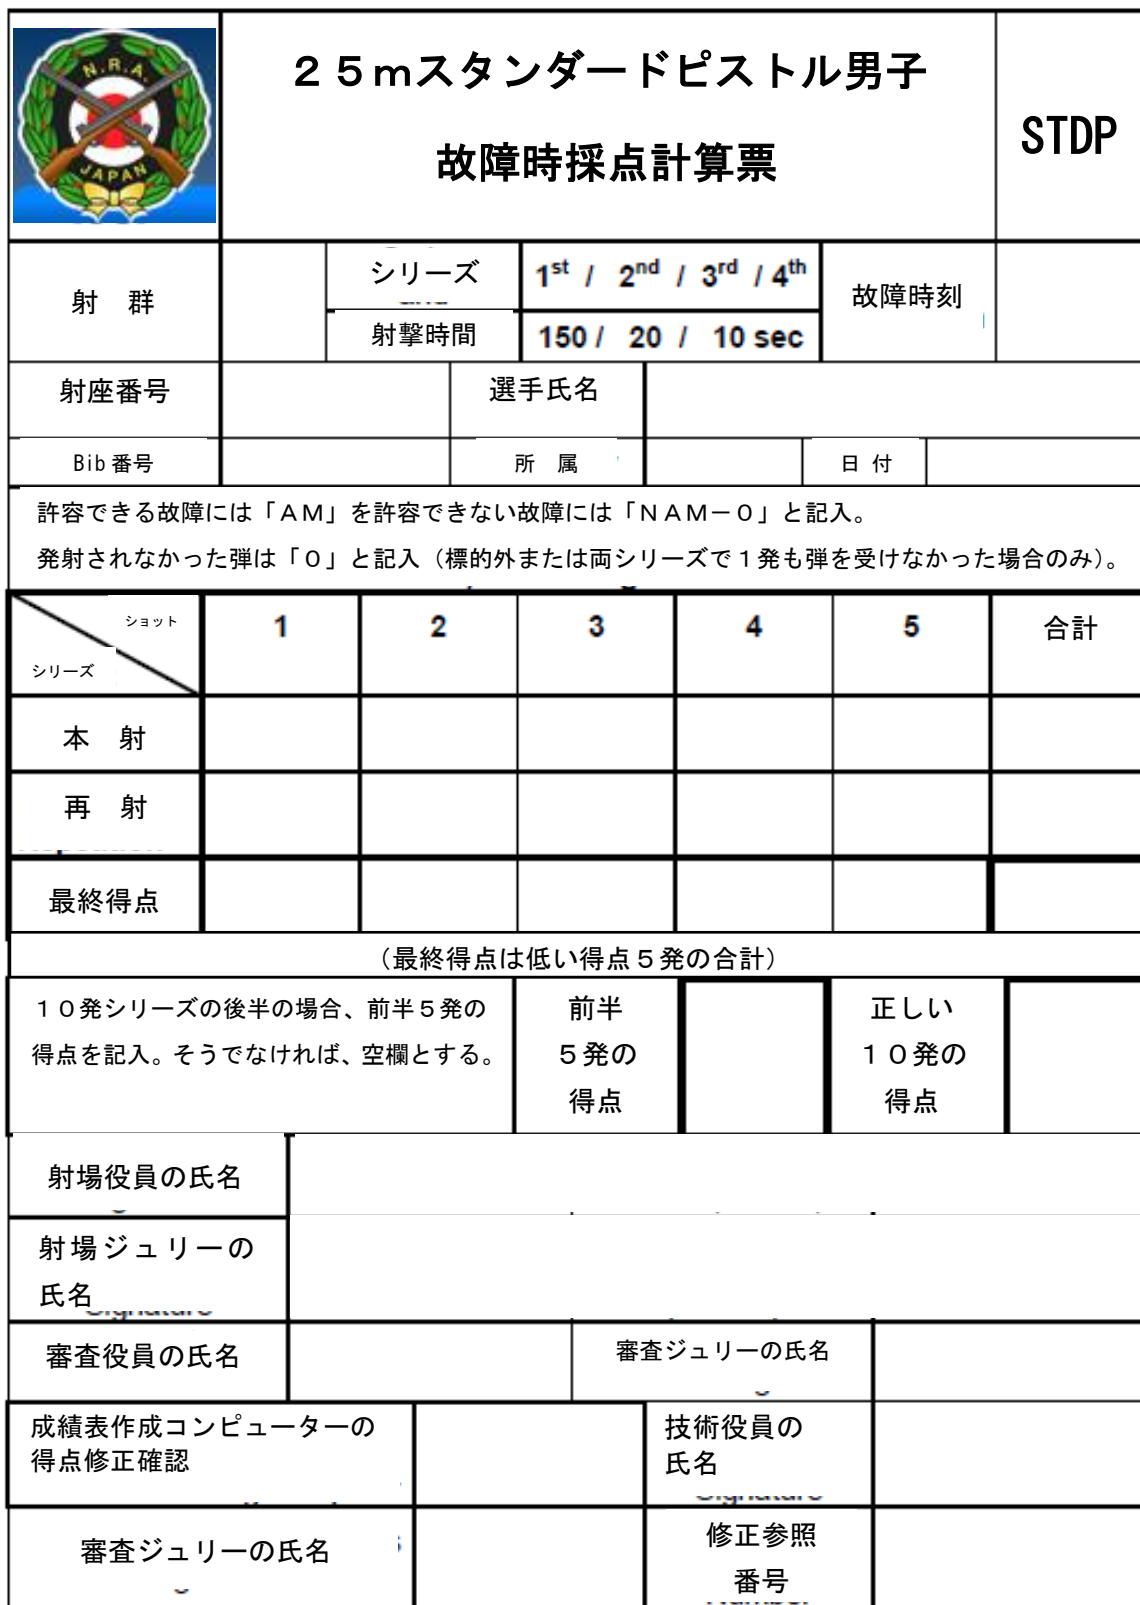 N.R.A.
JAPAN
２５ｍスタンダードピストル男子
故障時採点計算票
STDP
射　群
シリーズ
1st / 2nd / 3rd / 4th
故障時刻
射撃時間
150 / 20 / 10 sec
射座番号
選手氏名
Bib 番号
所　属
日 付
許容できる故障には「ＡＭ」を許容できない故障には「ＮＡＭ－０」と記入。
発射されなかった弾は「０」と記入（標的外または両シリーズで１発も弾を受けなかった場合のみ）。
ショット
シリーズ
1 2 3 4 5 合計
本　射
再　射
最終得点
（最終得点は低い得点５発の合計）
１０発シリーズの後半の場合、前半５発の
得点を記入。そうでなければ、空欄とする。
前半
５発の
得点
正しい
１０発の
得点
射場役員の氏名
射場ジュリーの
氏名
審査役員の氏名
審査ジュリーの氏名
成績表作成コンピューターの
得点修正確認
技術役員の
氏名
審査ジュリーの氏名
修正参照
番号